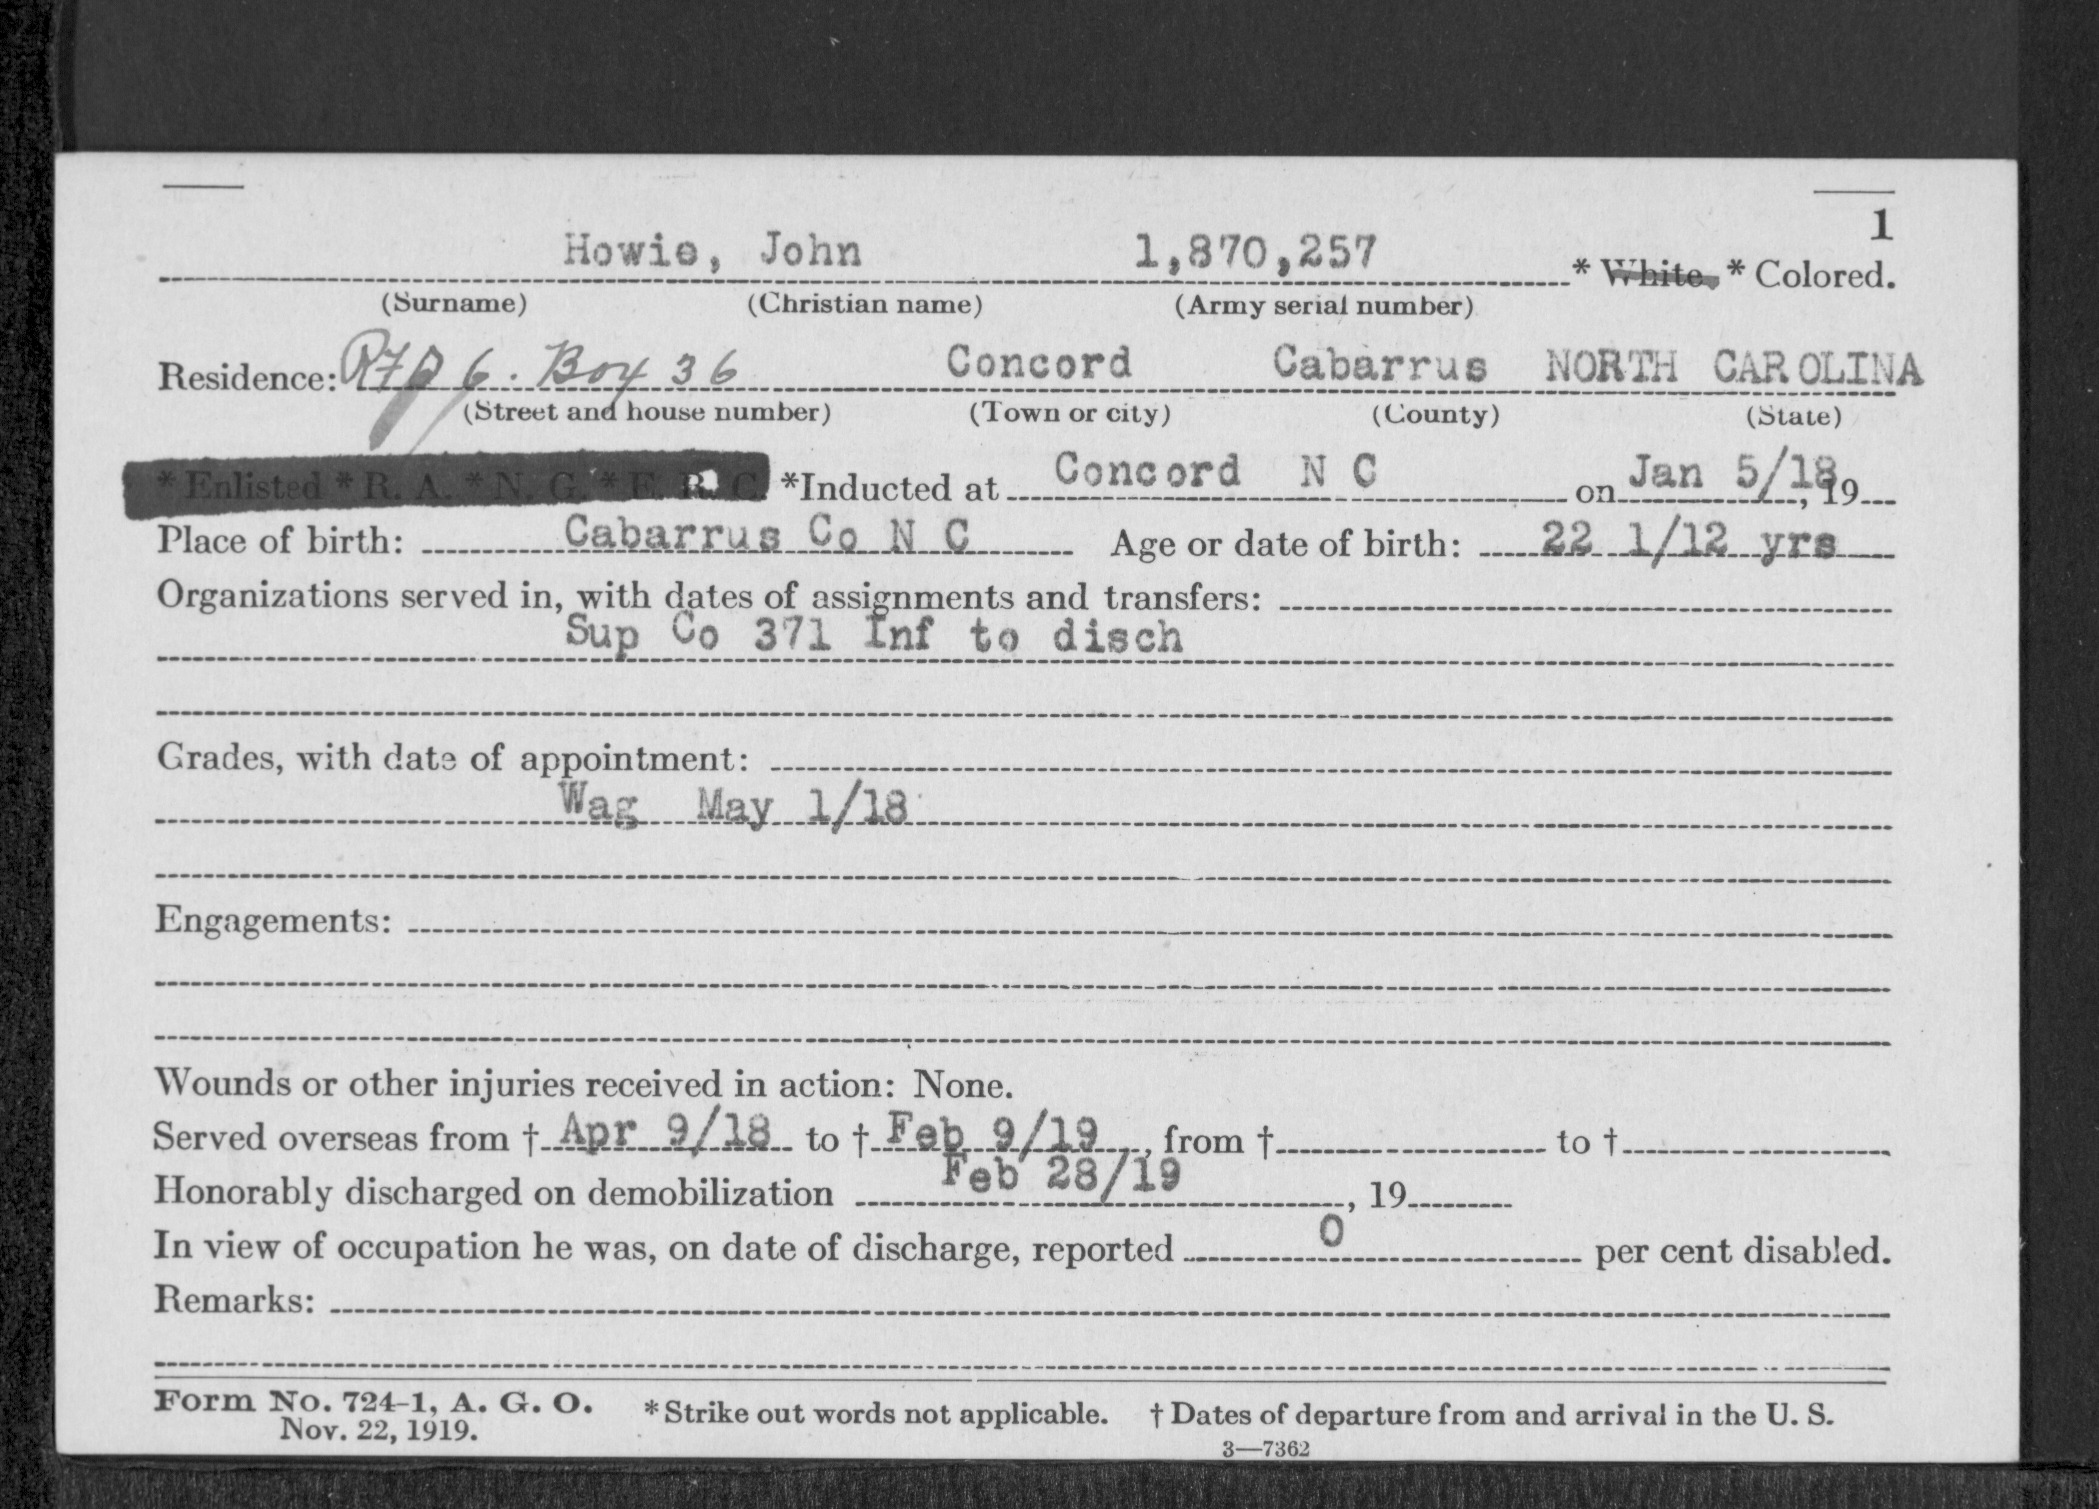 1
Howie, John 1,870,257 * White, * Colored.
(Surname) (Christian name) (Army serial number)
Residence: RFD 6. Box 36 Concord Cabarrus NORTH CAROLINA
(Street and house number) (Town or city) (County) (State)
* Enlisted * R. A. * N. G. * E. R. C. *Inducted at Concord N C on Jan 5/18, 19
Place of birth: Cabarrus Co N C Age or date of birth: 22 1/12 yrs
Organizations served in, with dates of assignments and transfers:
Sup Co 371 Inf to disch
Grades, with date of appointment:
Wag May 1/18
Engagements:
Wounds or other injuries received in action: None.
Served overseas from † Apr 9/18 to † Feb 9/19, from † to †
Honorably discharged on demobilization Feb 28/19, 19
In view of occupation he was, on date of discharge, reported 0 per cent disabled.
Remarks:
Form No. 724-1, A. G. O. *Strike out words not applicable. † Dates of departure from and arrival in the U. S.
Nov. 22, 1919.
3—7362